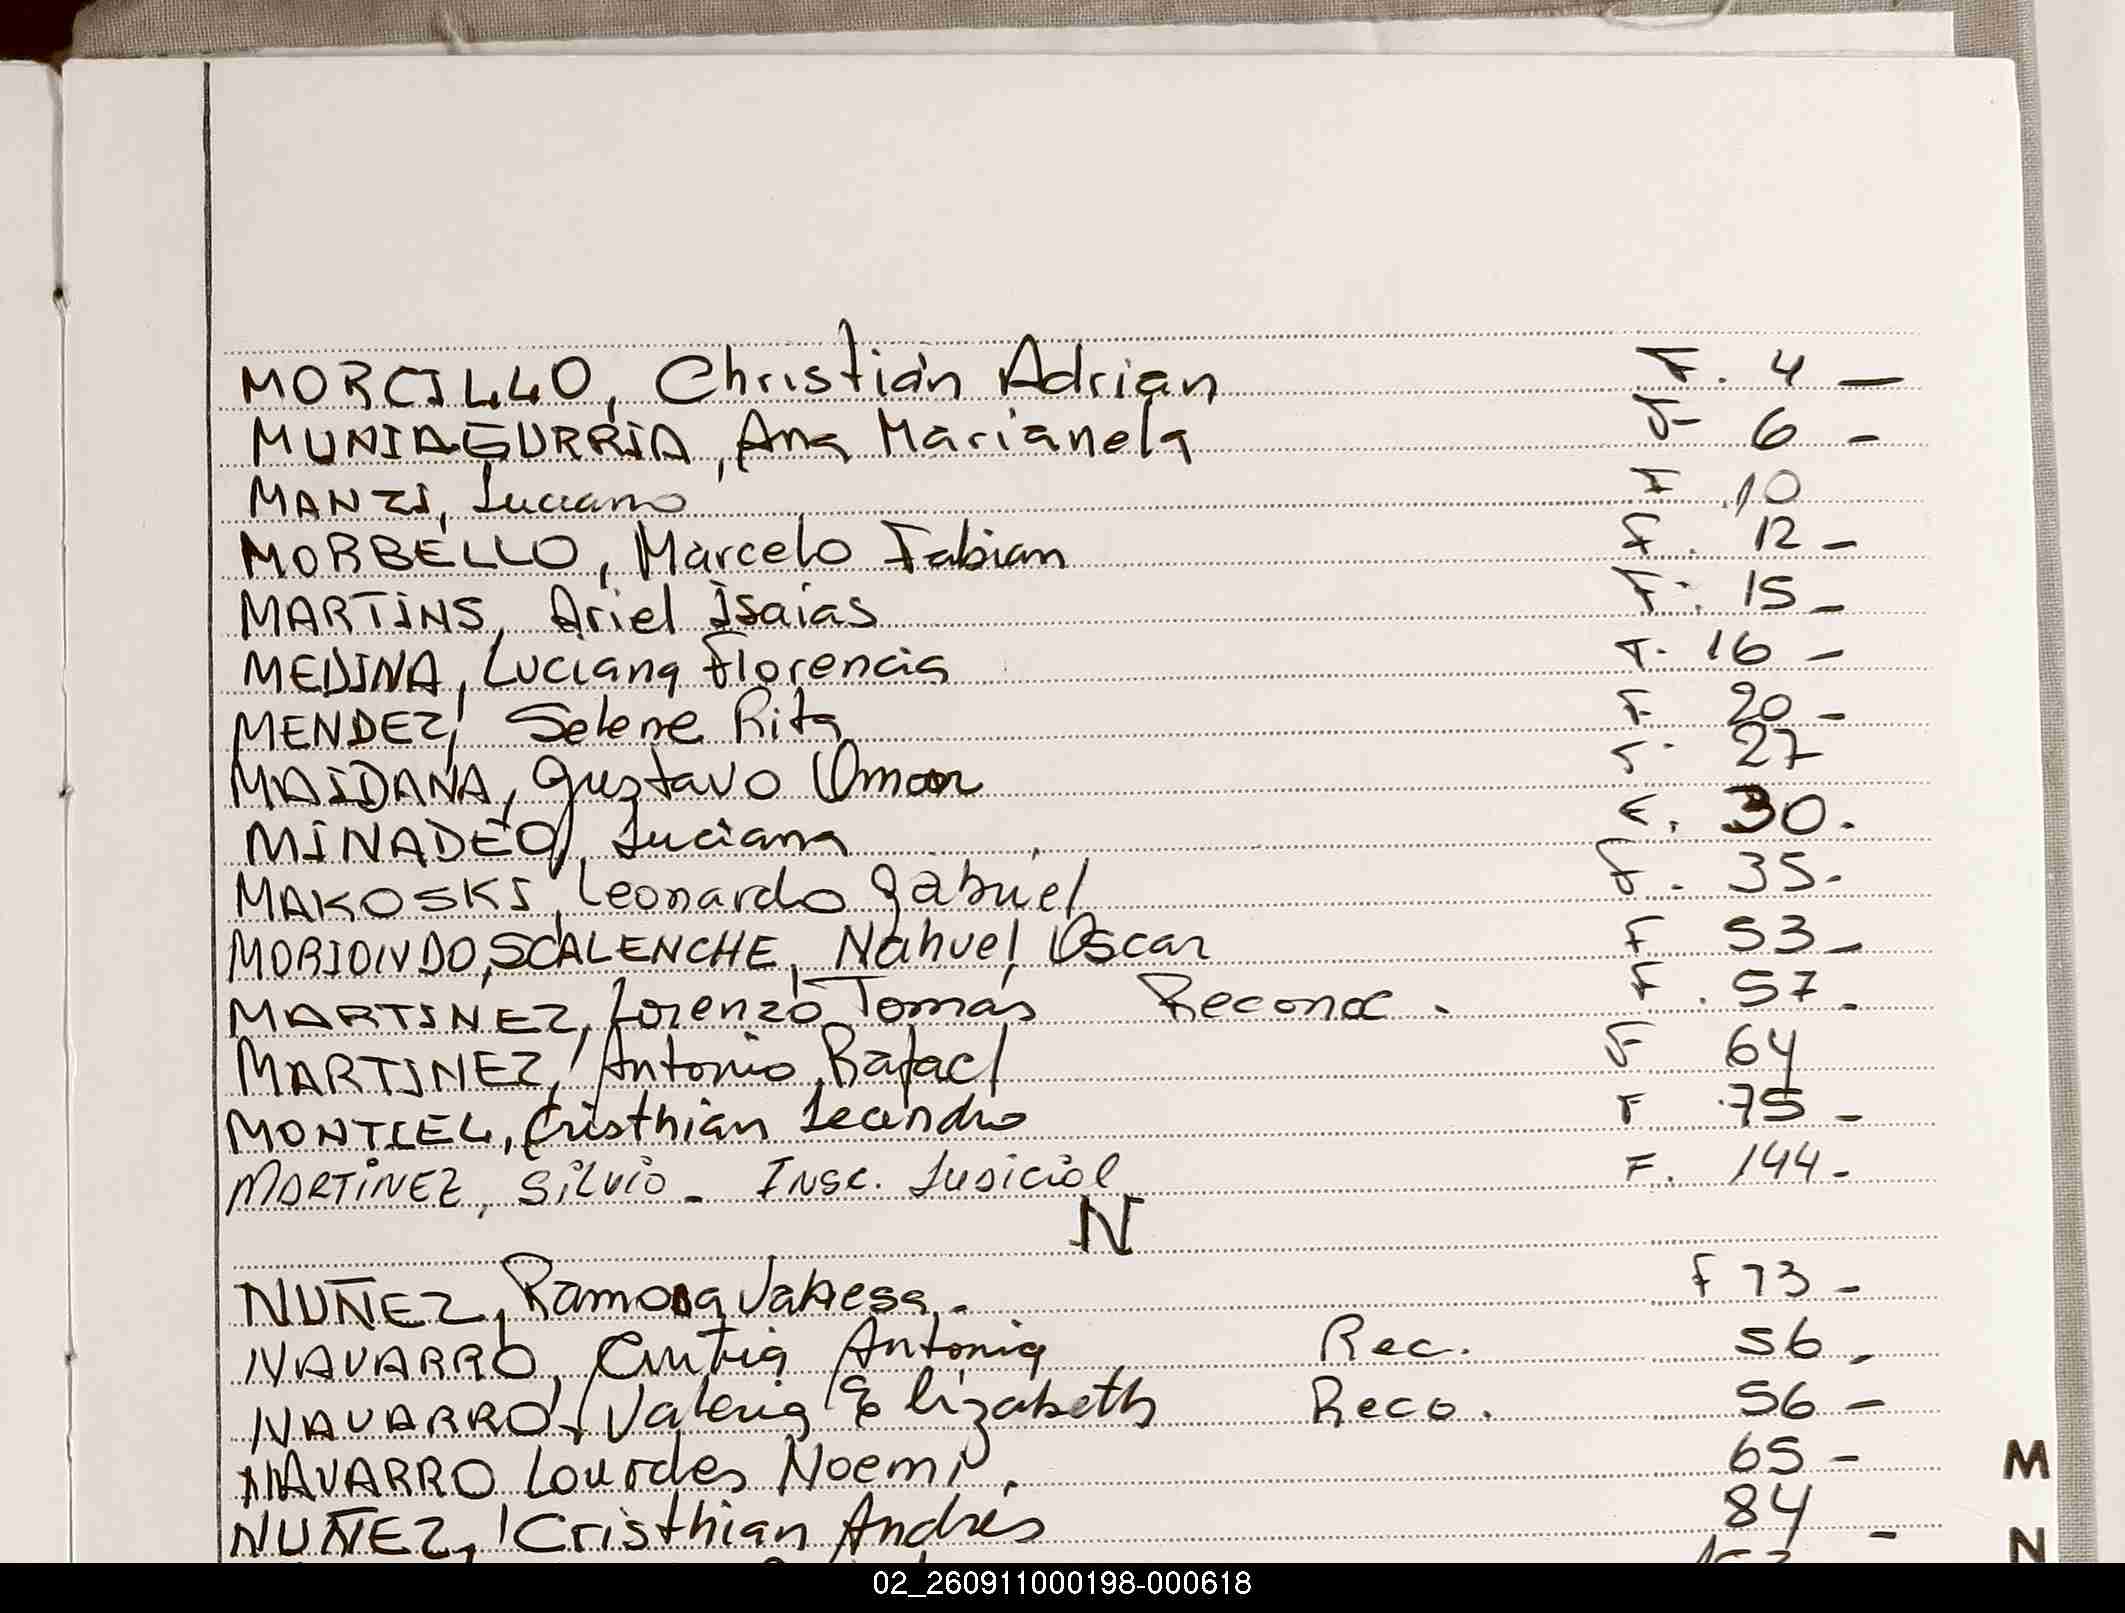 MORCILLO, Christián Adrian F. 4 —
MUNIAGURRIA, Ana Marianela F- 6 -
MANZI, Luciano F 10
MORBELLO, Marcelo Fabian F. 12 -
MARTINS, Ariel Isaias F. 15 -
MEDINA, Luciana Florencia F. 16 -
MENDEZ, Selene Rita F. 20 -
MAIDANA, Gustavo Omar F. 27
MINADEO, Luciana F. 30.
MAKOSKI, Leonardo Gabriel F. 35-
MORIONDO, SCALENCHE, Nahuel Oscar F 53 -
MARTINEZ, Lorenzo Tomás Reconoc. F. 57 -
MARTINEZ, Antonio Rafael F 64
MONTIEL, Cristhian Leandro F 75 -
MARTINEZ, Silvio - Insc. Judicial F. 144 -
N
NUÑEZ, Ramona Vanesa. F 73 -
NAVARRO, Cintia Antonia Rec. 56 -
NAVARRO, Valeria Elizabeth Reco. 56 -
NAVARRO Lourdes Noemi. 65 -
NUÑEZ, Cristhian Andrés 84 -
M
N
02_260911000198-000618